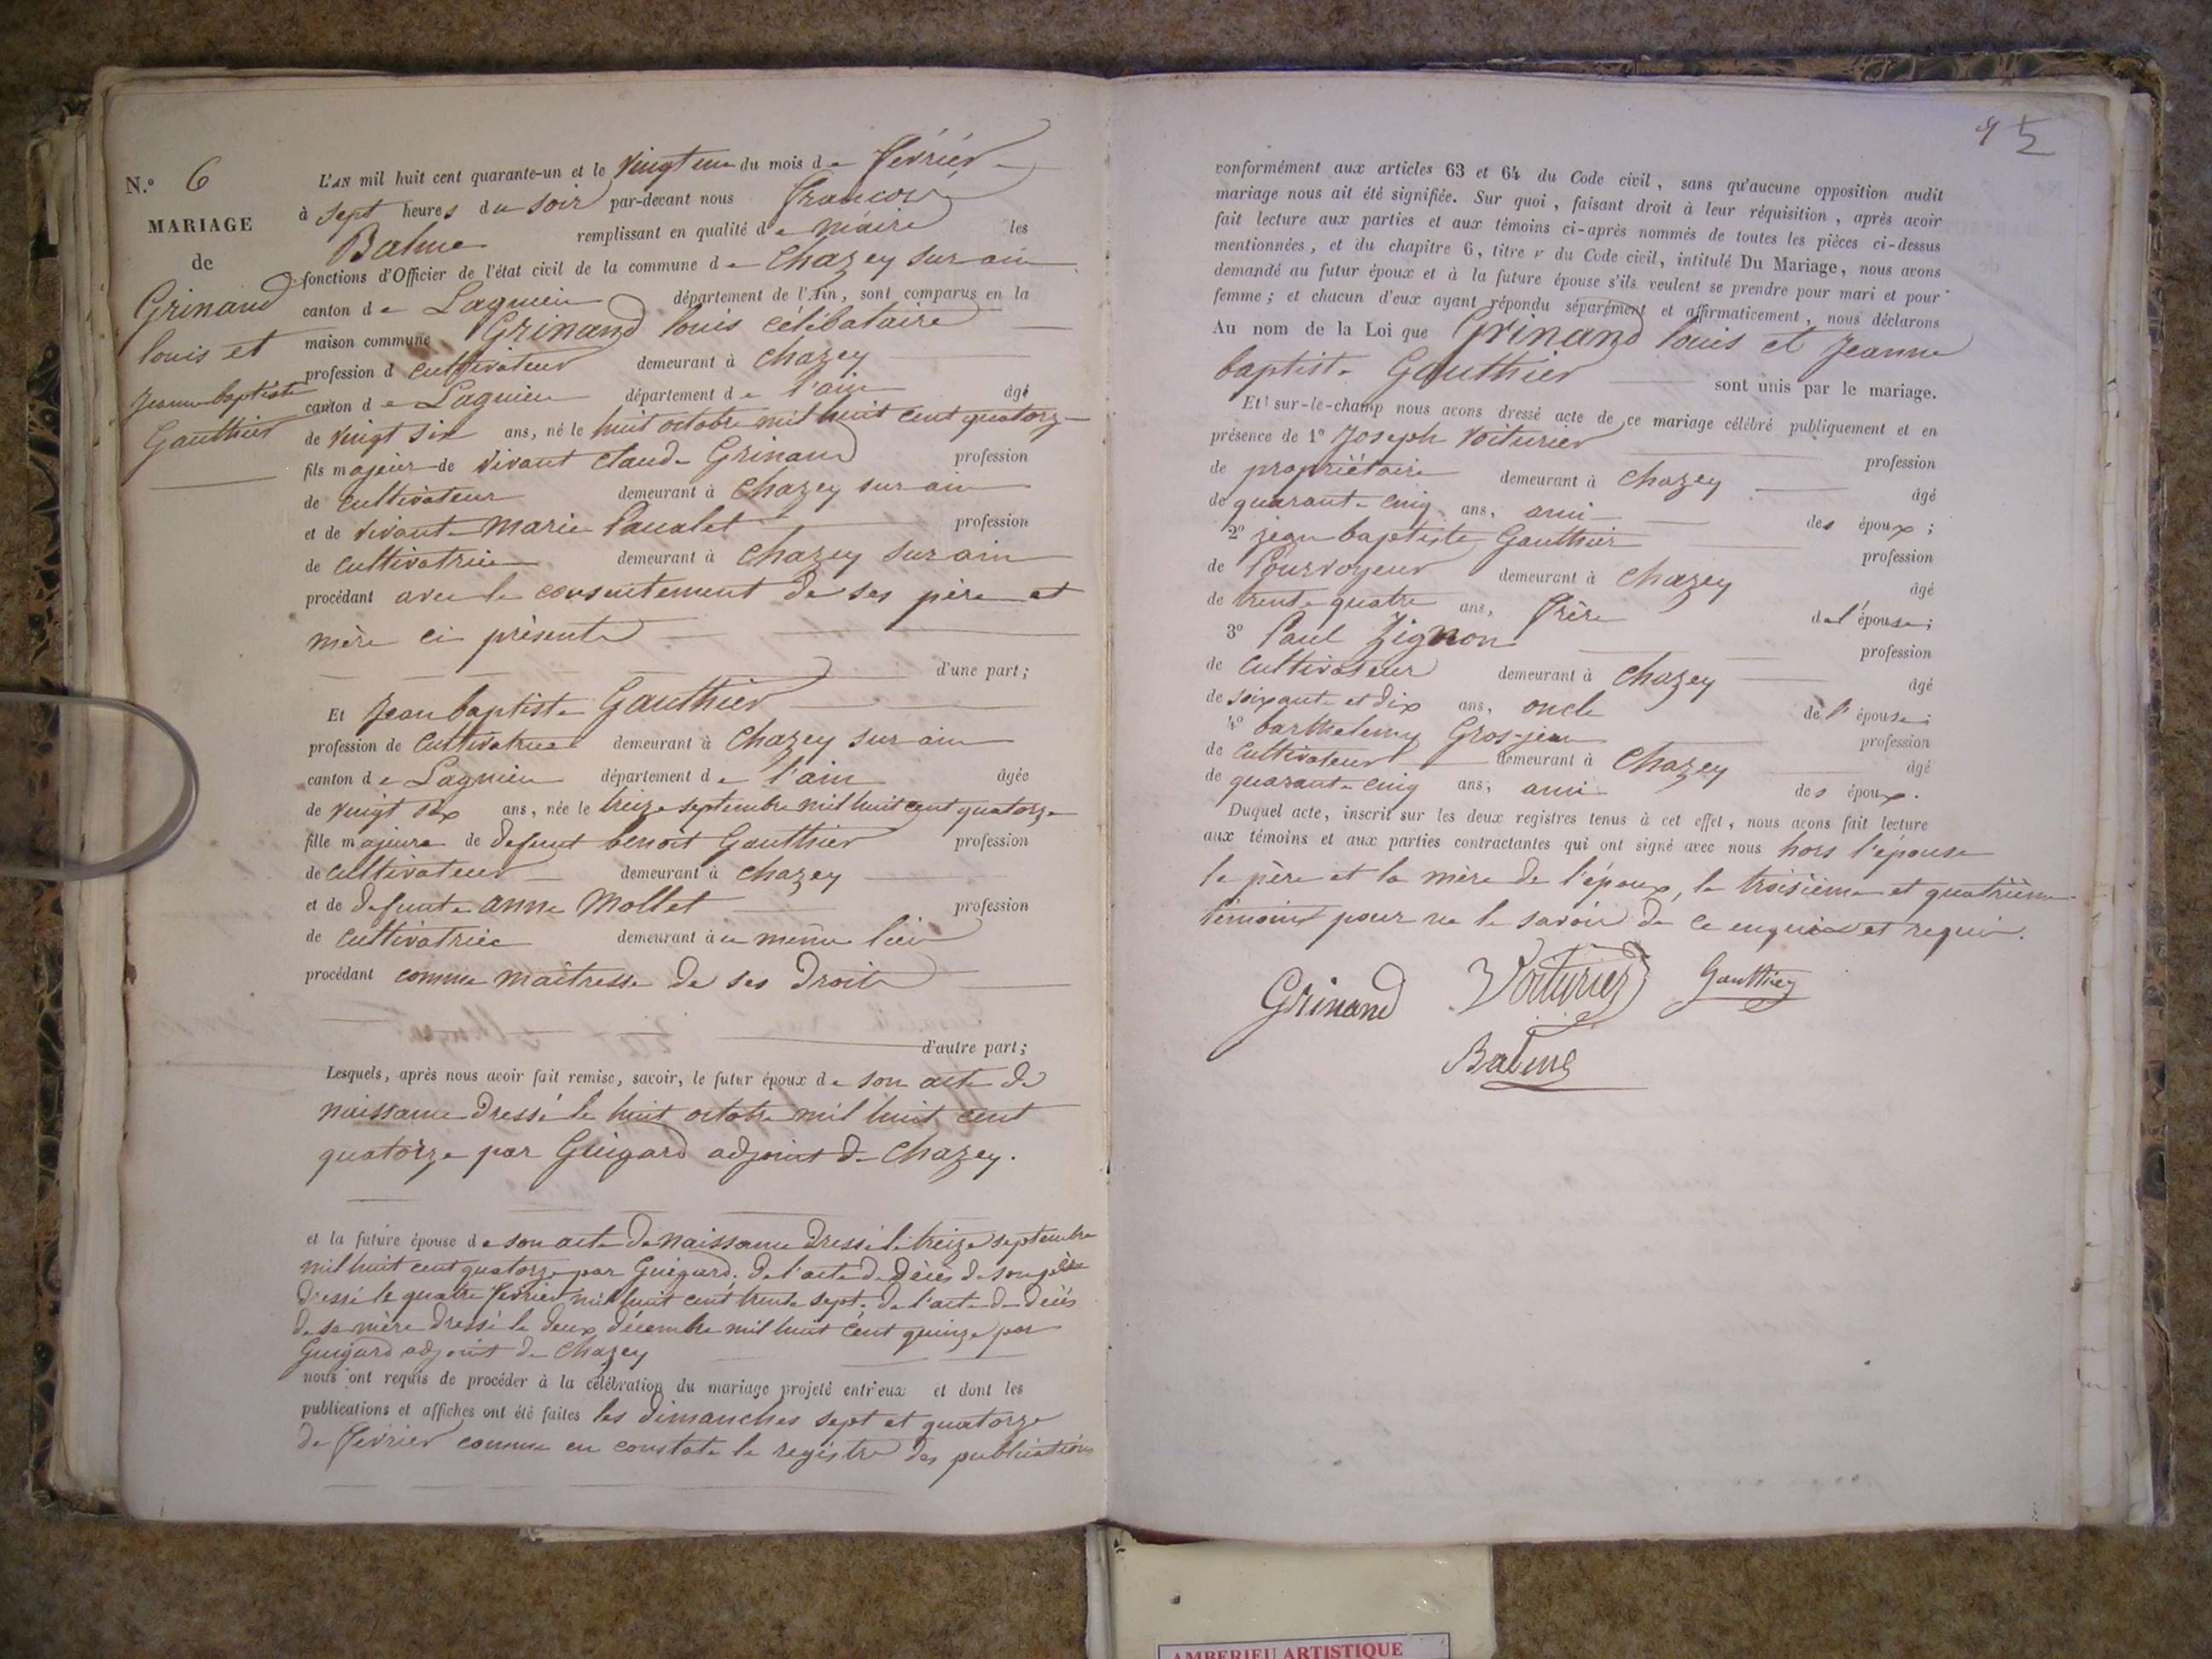 N.º 6
MARIAGE
de
Grinand
louis et
Jeanne baptiste
Gauthier
L'AN mil huit cent quarante-un et le vingt un du mois de février
à sept heures du soir par-devant nous françois
Balme remplissant en qualité de maire les
fonctions d'Officier de l'état civil de la commune de Chazey sur ain
canton de Lagnieu département de l'Ain, sont comparus en la
maison commune Grinand louis célibataire
profession d cultivateur demeurant à chazey
canton de Lagnieu département de l'ain âgé
de vingt six ans, né le huit octobre mil huit cent quatorze
fils majeur de vivant claude Grinand profession
de cultivateur demeurant à Chazey sur ain
et de vivante Marie Paualet profession
de cultivatrice demeurant à Chazey sur ain
procédant avec le consentement de ses père et
mère ci présents
d'une part;
Et Jean baptiste Gauthier
profession de cultivatrice demeurant à Chazey sur ain
canton de Lagnieu département de l'ain âgée
de vingt six ans, née le treize septembre mil huit cent quatorze
fille majeure de defunt benoit Gauthier profession
de cultivateur demeurant à chazey
et de defunte anne Mollet profession
de cultivatrice demeurant à ce même lieu
procédant comme maîtresse de ses droits
d'autre part;
Lesquels, après nous avoir fait remise, savoir, le futur époux de son acte de
naissance dressé le huit octobre mil huit cent
quatorze par Guigard adjoint de Chazey.
et la future épouse de son acte de naissance dressé le treize septembre
mil huit cent quatorze par Guigard; de l'acte de décès de son père
dressé le quatre février mil huit cent trente sept; de l'acte de décès
de sa mère dressé le deux décembre mil huit cent quinze par
Guigard adjoint de Chazey
nous ont requis de procéder à la célébration du mariage projeté entr'eux et dont les
publications et affiches ont été faites les dimanches sept et quatorze
de février comme en constate le registre des publications
45
conformément aux articles 63 et 64 du Code civil, sans qu'aucune opposition audit
mariage nous ait été signifiée. Sur quoi, faisant droit à leur réquisition, après avoir
fait lecture aux parties et aux témoins ci-après nommés de toutes les pièces ci-dessus
mentionnées, et du chapitre 6, titre v du Code civil, intitulé Du Mariage, nous avons
demandé au futur époux et à la future épouse s'ils veulent se prendre pour mari et pour
femme; et chacun d'eux ayant répondu séparément et affirmativement, nous déclarons
Au nom de la Loi que Grinand louis et Jeanne
baptiste Gauthier sont unis par le mariage.
Et sur-le-champ nous avons dressé acte de ce mariage célébré publiquement et en
présence de 1º Joseph Voiturier profession
de propriétaire demeurant à chazey âgé
de quarante cinq ans, ami des époux;
2º jean baptiste Gauthier profession
de Pourvoyeur demeurant à chazey âgé
de trente quatre ans, frère de l'épouse;
3º Paul Zignon profession
de cultivateur demeurant à Chazey âgé
de soixante et dix ans, oncle de l'épouse;
4º barthelemy Gros-jean profession
de cultivateur demeurant à Chazey âgé
de quarante cinq ans, ami des époux.
Duquel acte, inscrit sur les deux registres tenus à cet effet, nous avons fait lecture
aux témoins et aux parties contractantes qui ont signé avec nous hors l'épouse
le père et la mère de l'époux, le troisième et quatrième
témoins pour ne le savoir de ce enquis et requis.
Grinand Voiturier Gauthier
Balme
AMBERIEU ARTISTIQUE